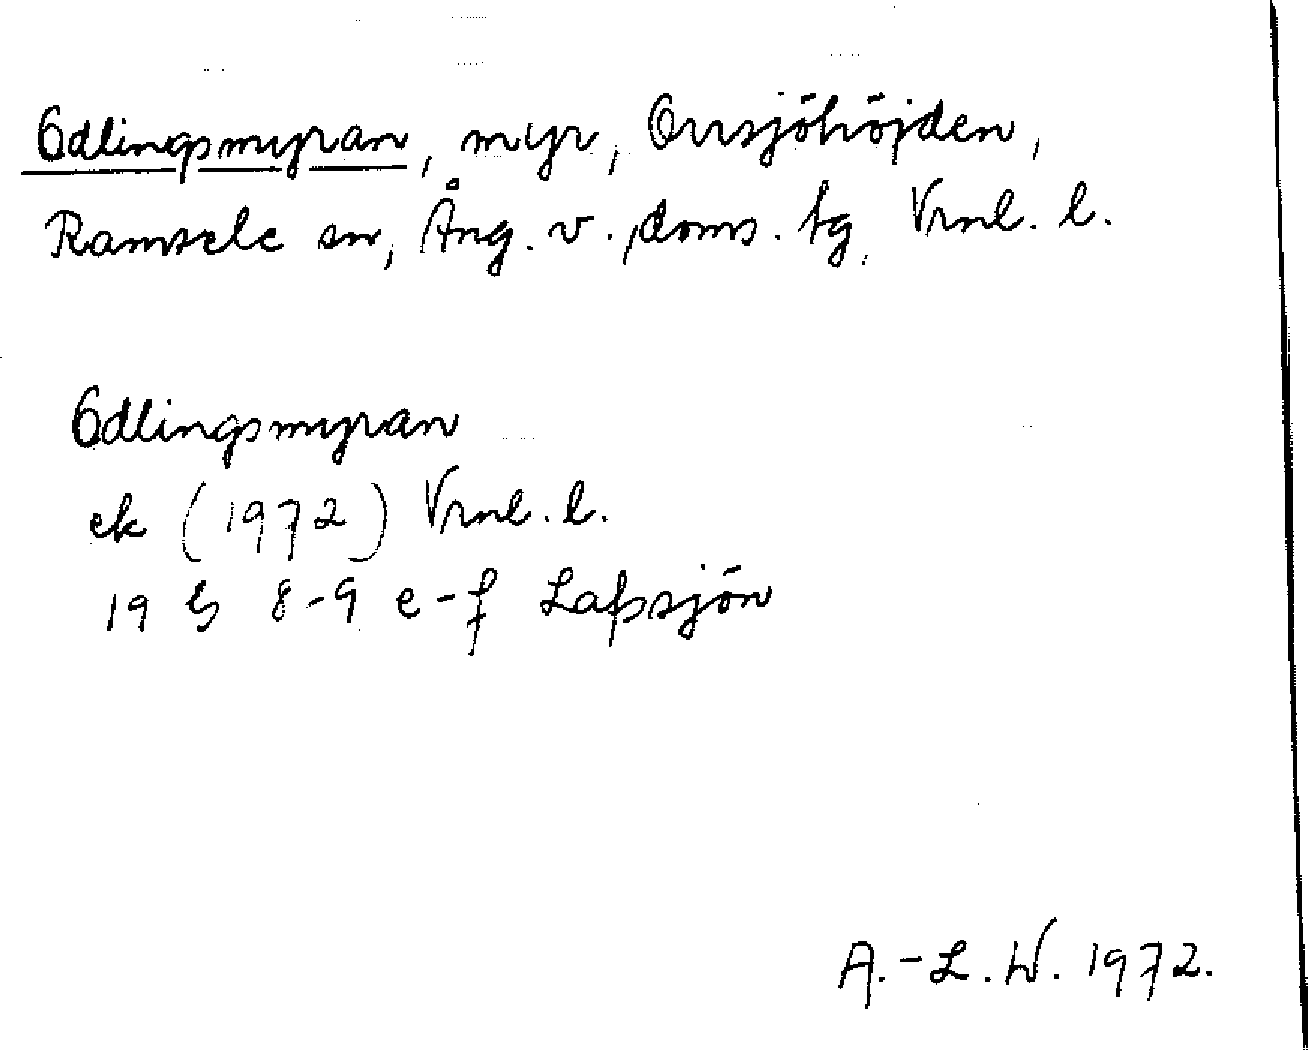 Odlingsmyran, myr, Orrsjöhöjden,
Ramsele sn, Ång. v., doms. tg, Vrnl. l.
Odlingsmyran
ek (1972) Vrnl. l.
19 G 8-9 e-f Lafssjön
A.-L. W. 1972.